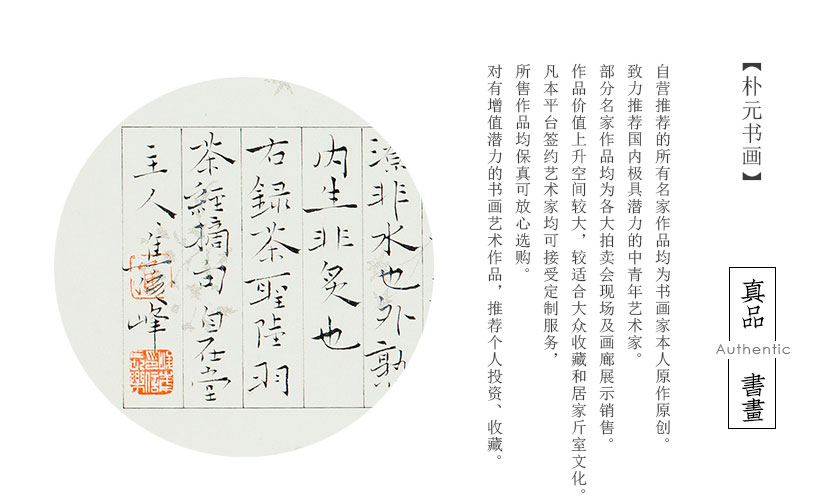 【朴元书画】
真品
Authentic
書畫
自营推荐的所有名家作品均为书画家本人原作原创。
致力推荐国内极具潜力的中青年艺术家。
部分名家作品均为各大拍卖会现场及画廊展示销售。
作品价值上升空间较大，较适合大众收藏和居家斤室文化。
凡本平台签约艺术家均可接受定制服务，
所售作品均保真可放心选购。
对有增值潜力的书画艺术作品，推荐个人投资、收藏。
非水也外熟
内生非炙也
右録茶聖陸羽
茶經摘句自在堂
主人崔峰